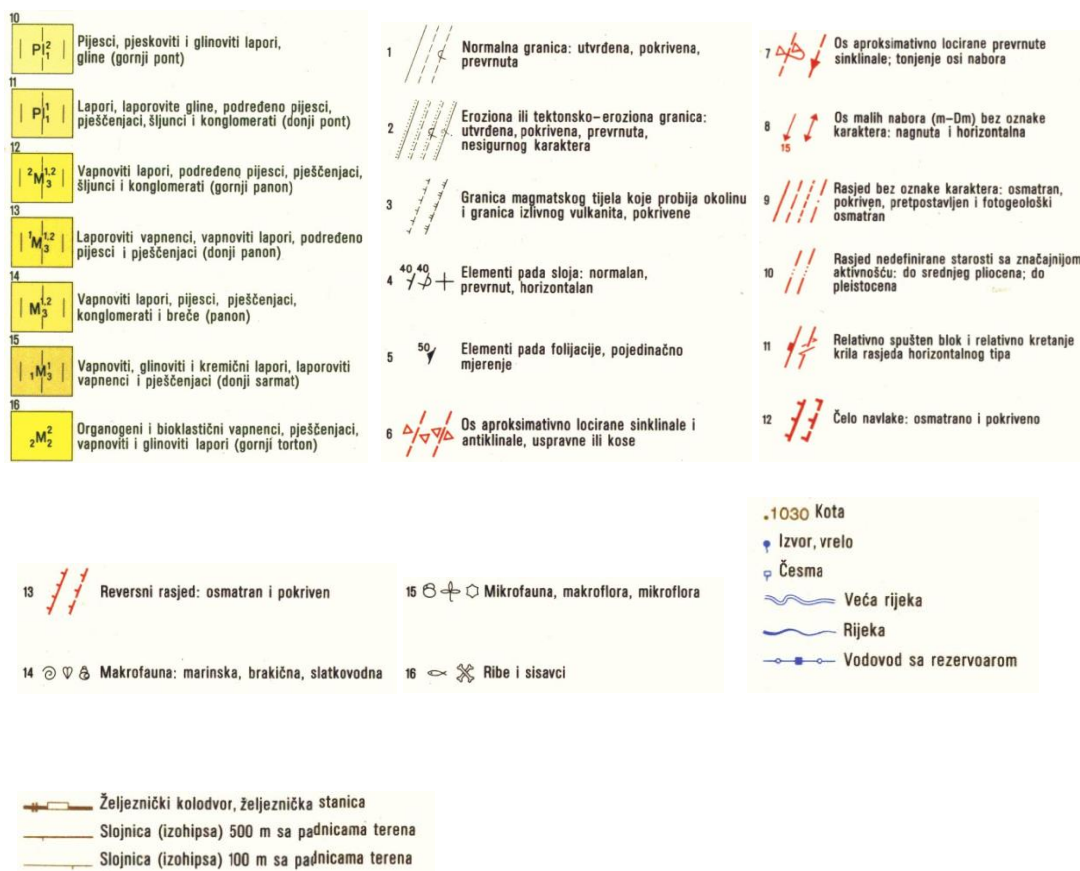 10
Pl₁² Pijesci, pjeskoviti i glinoviti lapori,
gline (gornji pont)
11
Pl₁¹ Lapori, laporovite gline, podređeno pijesci,
pješčenjaci, šljunci i konglomerati (donji pont)
12
²M₃¹,² Vapnoviti lapori, podređeno pijesci, pješčenjaci,
šljunci i konglomerati (gornji panon)
13
¹M₃¹,² Laporoviti vapnenci, vapnoviti lapori, podređeno
pijesci i pješčenjaci (donji panon)
14
M₃¹,² Vapnoviti lapori, pijesci, pješčenjaci,
konglomerati i breče (panon)
15
₁M₃¹ Vapnoviti, glinoviti i kremični lapori, laporoviti
vapnenci i pješčenjaci (donji sarmat)
16
₂M₂² Organogeni i bioklastični vapnenci, pješčenjaci,
vapnoviti i glinoviti lapori (gornji torton)
1 Normalna granica: utvrđena, pokrivena,
prevrnuta
2 Eroziona ili tektonsko–eroziona granica:
utvrđena, pokrivena, prevrnuta,
nesigurnog karaktera
3 Granica magmatskog tijela koje probija okolinu
i granica izlivnog vulkanita, pokrivene
4 40 40 Elementi pada sloja: normalan,
prevrnut, horizontalan
5 50 Elementi pada folijacije, pojedinačno
mjerenje
6 Os aproksimativno locirane sinklinale i
antiklinale, uspravne ili kose
7 Os aproksimativno locirane prevrnute
sinklinale; tonjenje osi nabora
8 15 Os malih nabora (m–Dm) bez oznake
karaktera: nagnuta i horizontalna
9 Rasjed bez oznake karaktera: osmatran,
pokriven, pretpostavljen i fotogeološki
osmatran
10 Rasjed nedefinirane starosti sa značajnijom
aktivnošću: do srednjeg pliocena; do
pleistocena
11 Relativno spušten blok i relativno kretanje
krila rasjeda horizontalnog tipa
12 Čelo navlake: osmatrano i pokriveno
13 Reversni rasjed: osmatran i pokriven
14 Makrofauna: marinska, brakična, slatkovodna
15 Mikrofauna, makroflora, mikroflora
16 Ribe i sisavci
.1030 Kota
Izvor, vrelo
Česma
Veća rijeka
Rijeka
Vodovod sa rezervoarom
Željeznički kolodvor, željeznička stanica
Slojnica (izohipsa) 500 m sa padnicama terena
Slojnica (izohipsa) 100 m sa padnicama terena